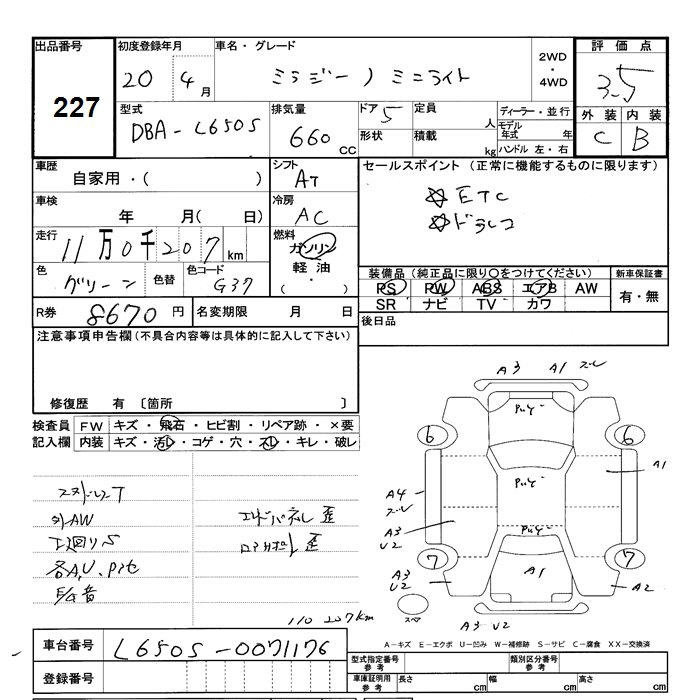 出品番号
227
初度登録年月
20 4 月
車名・グレード
ミラジーノ ミニライト
2WD
・
4WD
評価点
3.5
型式
DBA-L650S
排気量
660 CC
ドア 5
定員
人
ディーラー・並行
モデル年式 年
形状
積載
kg
ハンドル 左・右
外装
C
内装
B
車歴
自家用・( )
シフト
AT
セールスポイント (正常に機能するものに限ります)
☆ETC
☆ドラレコ
車検
年 月( 日)
冷房
AC
走行
11万0千207km
燃料
ガソリン
軽油
( ・ )
色
グリーン
色替
色コード
G37
装備品(純正品に限り○をつけてください)
PS PW ABS エアB AW
SR ナビ TV カワ
新車保証書
有・無
R券 8670 円
名変期限 月 日
後日品
注意事項申告欄(不具合内容等は具体的に記入して下さい)
修復歴 有 〔箇所 〕
検査員 FW キズ・飛石・ヒビ割・リペア跡・×要
記入欄 内装 キズ・汚レ・コゲ・穴・スレ・キレ・破レ
外AW
下廻りS
各A,U、Pﾅｾ
エンドパネル歪
歪
110 207km
A3 A1 スレ
Pｷｽﾞ
6 6
A1
A4
スレ
A3
U2
7 7
A3
U2
A1
A2
スペア
A3 U2
A-キズ E-エクボ U-凹み W-補修跡 S-サビ C-腐食 XX-交換済
車台番号
L650S-0071176
登録番号
型式指定番号
参考
類別区分番号
参考
車庫証明用
参考
長さ cm
幅 cm
高さ cm